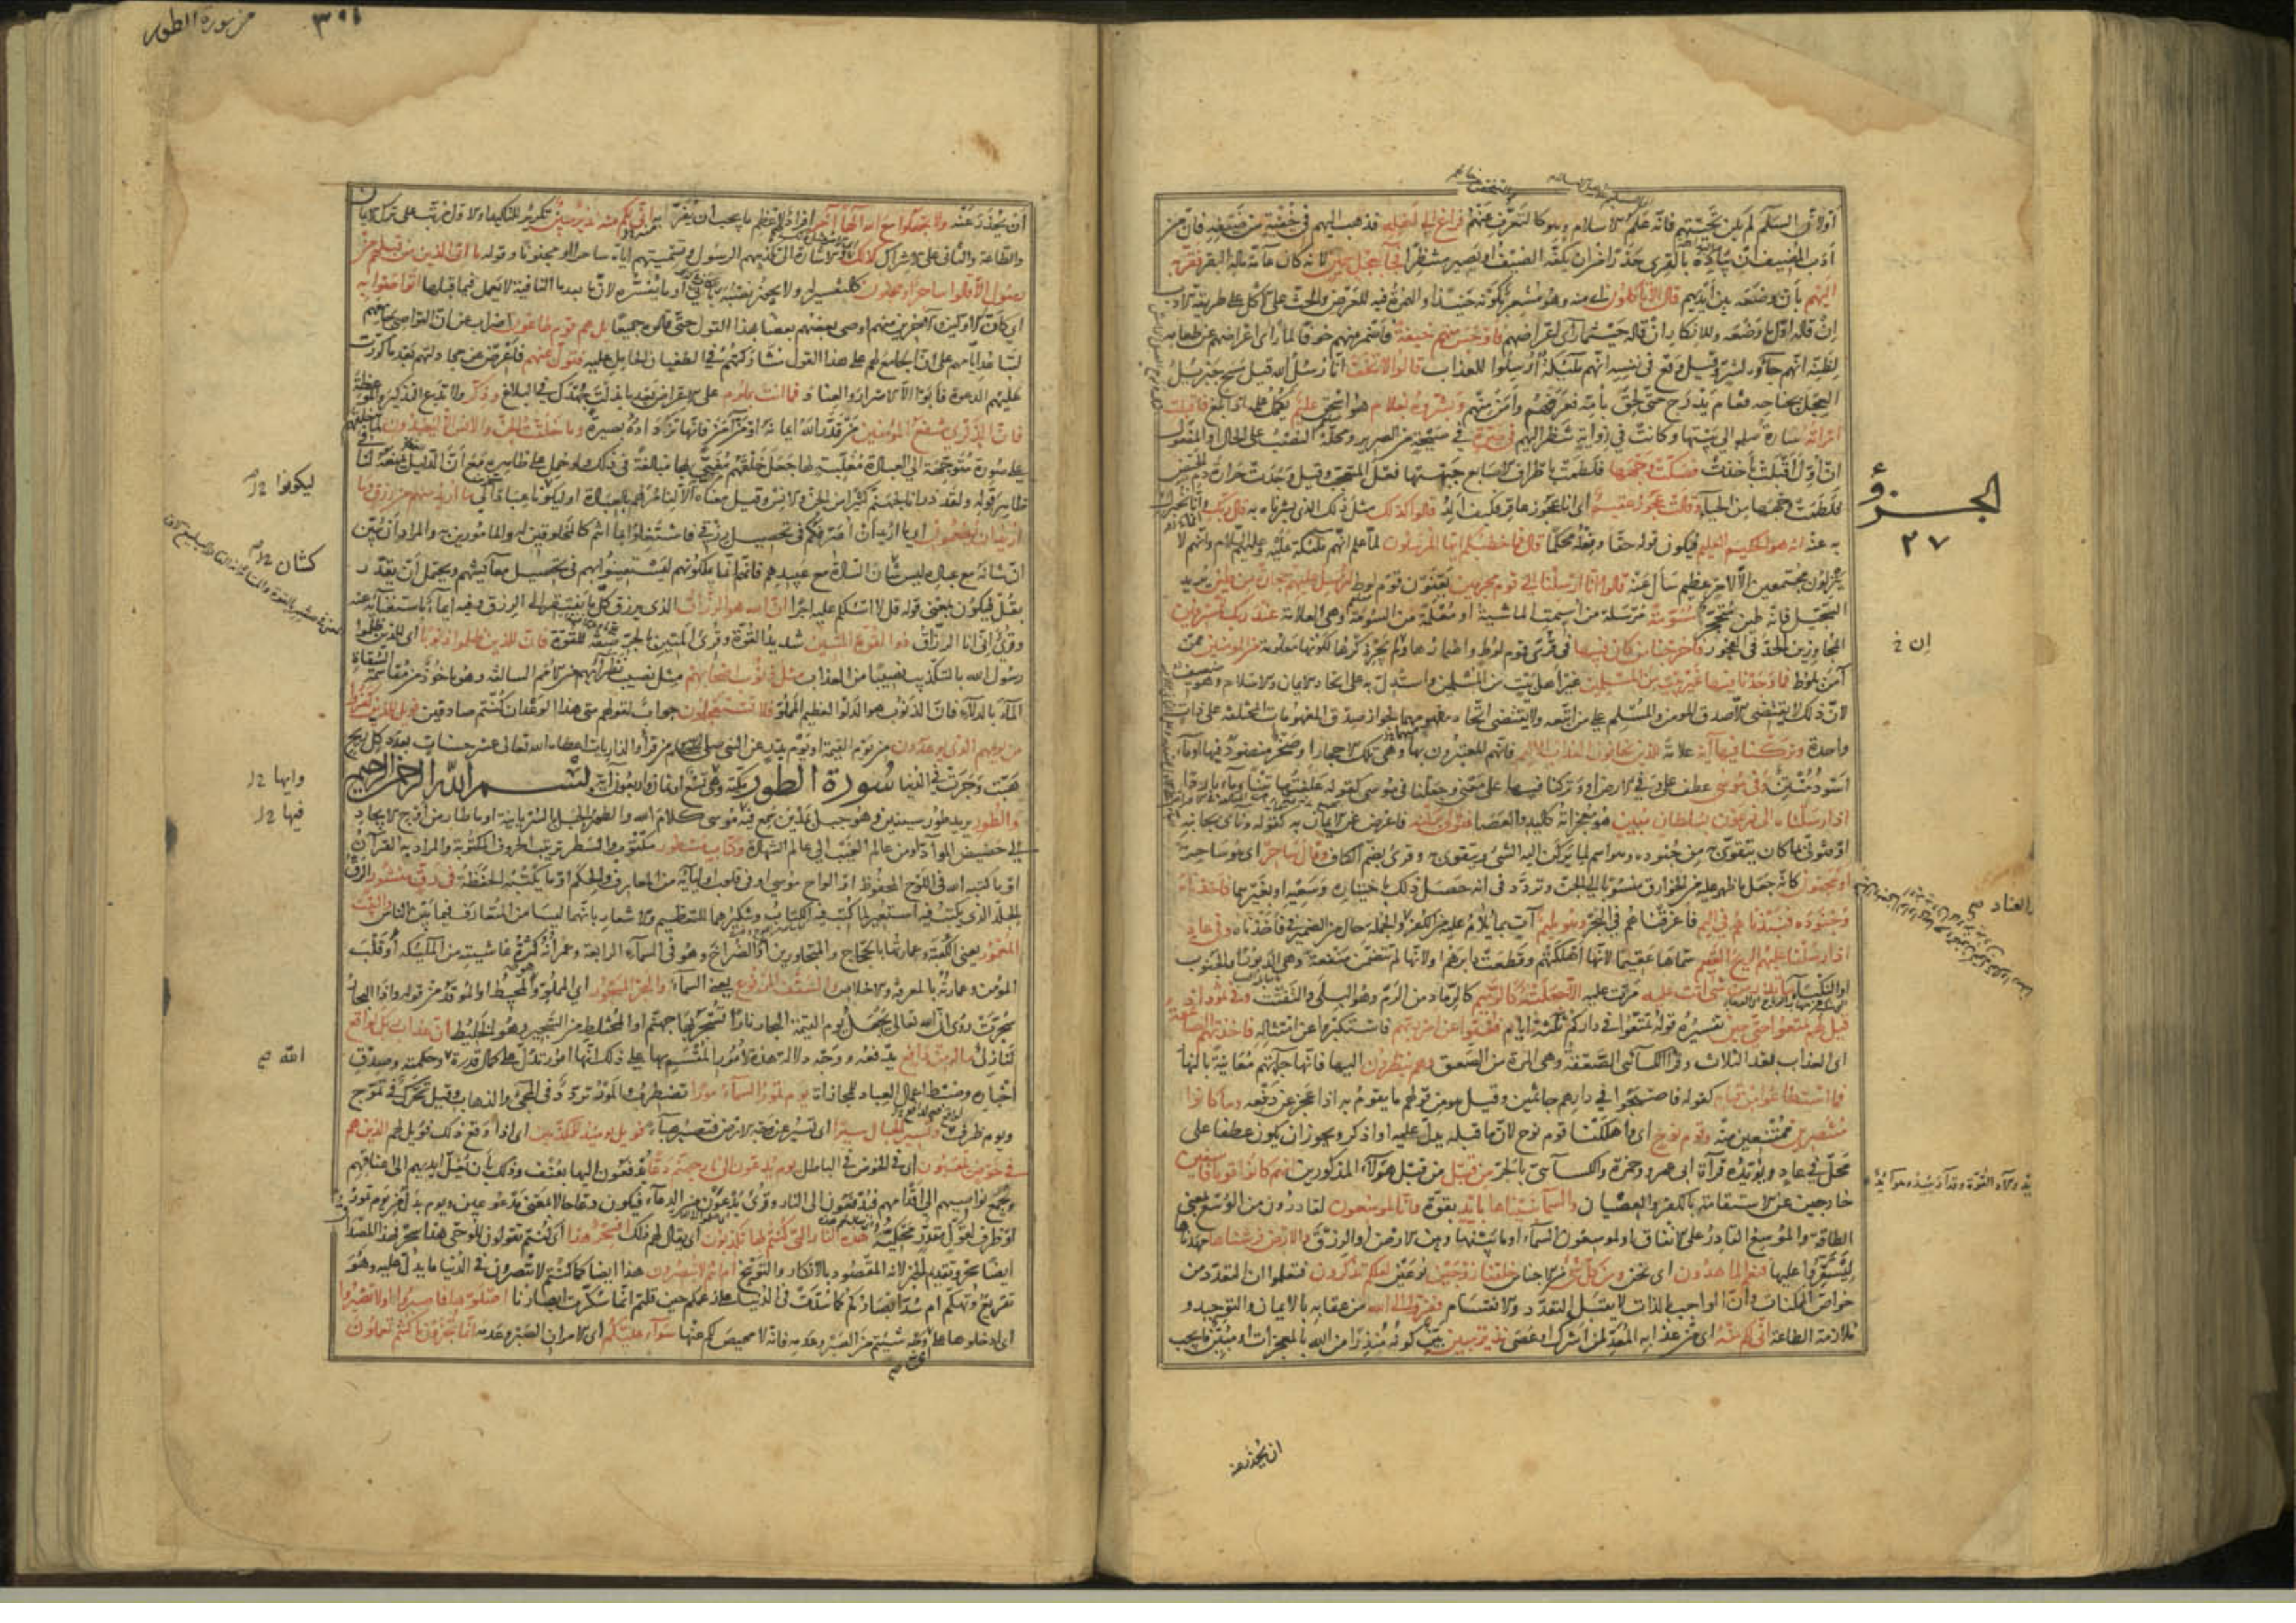 الجزؤ
٢٧
أولا لأن السلام لم يكن تحيتهم فانه علم الاسلام وهو كالتعرف عنهم فراغ الى اهله فذهب اليهم في خفية من ضيفه فان من
أدب المضيف أن يبادره بالقرى حذرا من ان يكفه الضيف او يصير منتظرا فجآء بعجل سمين لانه كان عامة ماله البقر فقربه
اليهم بأن وضعه بين أيديهم قال ألا تأكلون اى منه وهو مشعر بكونه حنيذا والهمزة فيه للعرض والحث على الاكل على طريقة الادب
إن قاله اول ما وضعه وللانكار ان قاله حيث ما رأى اعراضهم فاوجس منهم خيفة فأضمر منهم خوفا لما رأى اعراضهم عن طعامه
لظنه انهم جآؤه لشر وقيل وقع في نفسه انهم ملئكة أرسلوا للعذاب قالوا لا تخف انا رسل الله قيل مسح جبرئيل
العجل بجناحه فقام يدرج حتى لحق بأمه فعرفهم وأمن منهم وبشروه بغلام هو اسحق عليم يكمل علمه اذا بلغ فاقبلت
امرأته سارة الى بيتها وكانت في زاوية تنظر اليهم في صرة في صيحة من الصرير ومحله النصب على الحال او المفعول
ان أول أقبلت بأخذت فصكت وجهها فلطمت باطراف الاصابع جبهتها فعل المتعجب وقيل وجدت حرارة دم الحيض
فلطمت وجهها من الحياء وقالت عجوز عقيم أى انا عجوز عاقر فكيف ألد قالوا كذلك مثل ذلك الذى بشرنا به قال ربك وانما نخبرك
به عنه انه هو الحكيم العليم فيكون قوله حقا وفعله محكما قال فما خطبكم ايها المرسلون لما علم انهم ملئكة عليه وعليهم السلام وانهم لا
ينزلون مجتمعين الا لامر عظيم سأل عنه قالوا انا ارسلنا الى قوم مجرمين يعنون قوم لوط لنرسل عليهم حجارة من طين يريد
السجيل فانه طين متحجر مسومة مرسلة من أسيمت الماشية او معلمة من السومة وهى العلامة عند ربك للمسرفين
المجاوزين الحد فى الفجور فاخرجنا من كان فيها في قرى قوم لوط واضمارها ولم يجر ذكرها لكونها معلومة من المؤمنين ممن
آمن بلوط فما وجدنا فيها غير بيت من المسلمين غير أهل بيت من المسلمين واستدل به على اتحاد الايمان والاسلام وهو ضعيف
لان ذلك لا يقتضى الا صدق المؤمن والمسلم على من اتبعه ولا يقتضى اتحاد مفهوميهما لجواز صدق المفهومات المختلفة على ذات
واحدة وتركنا فيها آية علامة للذين يخافون العذاب الاليم فانهم المعتبرون بها وهى تلك الاحجار او صخر منضود فيها او ماء
اسود منتن وفى موسى عطف على وفي الارض او وتركنا فيها على معنى وجعلنا فى موسى كقوله علفتها تبنا وماء باردا
اذ ارسلناه الى فرعون بسلطان مبين هو معجزاته كاليد والعصا فتولى بركنه فاعرض عن الايمان به كقوله ونأى بجانبه
او فتولى بما كان يتقوى به من جنوده وهو اسم لما يركن اليه الشئ ويتقوى به وقرئ بضم الكاف وقال ساحر اى هو ساحر
او مجنون كانه جعل ما ظهر عليه من الخوارق منسوبا الى الجن وتردد فى انه حصل ذلك باختياره وسعيه او بغيرهما فاخذناه
وجنوده فنبذناهم في اليم فأغرقناهم في البحر وهو مليم آت بما يلام عليه من الكفر والعناد والجملة حال من الضمير في فأخذناه وفى عاد
اذ ارسلنا عليهم الريح العقيم سماها عقيما لانها أهلكتهم وقطعت دابرهم او لانها لم تتضمن منفعة وهى الدبور او الجنوب
او النكباء ما تذر من شئ أتت عليه مرت عليه الا جعلته كالرميم كالرماد من الرم وهو البلى والتفتت وفى ثمود اذ
قيل لهم تمتعوا حتى حين تفسيره قوله تمتعوا في داركم ثلثة ايام فعتوا عن امر ربهم فاستكبروا عن امتثاله فاخذتهم الصاعقة
اى العذاب بعد الثلاث وقرأ الكسائى الصعقة وهى المرة من الصعق وهم ينظرون اليها فانها جآءتهم معاينة بالنهار
فما استطاعوا من قيام كقوله فاصبحوا في دارهم جاثمين وقيل هو من قولهم ما يقوم به اذا عجز عن دفعه وما كانوا
منتصرين ممتنعين منه وقوم نوح اى واهلكنا قوم نوح لان ما قبله يدل عليه او اذكر ويجوز ان يكون عطفا على
محل في عاد ويؤيده قرآءة ابى عمرو وحمزة والكسآئى بالجر من قبل من قبل هؤلاء المذكورين انهم كانوا قوما فاسقين
خارجين عن الاستقامة بالكفر والعصيان والسمآء بنيناها بايد بقوة وانا لموسعون لقادرون من الوسع بمعنى
الطاقة والموسع القادر على الانفاق او لموسعون السماء او ما بينها وبين الارض او الرزق والارض فرشناها مهدناها
ليستقروا عليها فنعم الماهدون اى نحن ومن كل شئ من الاجناس خلقنا زوجين نوعين لعلكم تذكرون فتعلموا ان التعدد من
خواص الممكنات وأن الواجب بالذات لا يقبل التعدد ولا الانقسام ففروا الى الله من عقابه بالايمان والتوحيد و
ملازمة الطاعة انى لكم منه اى من عذابه المعد لمن أشرك او عصى نذير مبين بين كونه منذرا من الله بالمعجزات او مبين ما يجب
ان يحذر عنه
من سورة الطور
٣٠١
أن يحذر عنه ولا تجعلوا مع الله الها آخر افراد لاعظم ما يجب أن يفر منه انى لكم منه نذير مبين تكرير للتأكيد او الاول مرتب على ترك الايمان
والطاعة والثانى على الاشراك كذلك اى الامر مثل ذلك والاشارة الى تكذيبهم الرسول وتسميتهم اياه ساحرا او مجنونا وقوله ما اتى الذين من قبلهم من
رسول الا قالوا ساحر او مجنون كالتفسير له ولا يجوز نصبه بأتى او ما يفسره لان ما بعد ما النافية لا يعمل فيما قبلها أتواصوا به
اى كأن الاولين والآخرين منهم اوصى بعضهم بعضا بهذا القول حتى قالوه جميعا بل هم قوم طاغون اضراب عن ان التواصى جامعهم
لتباعد ايامهم الى ان الجامع لهم على هذا القول مشاركتهم في الطغيان الحامل عليه فتول عنهم فأعرض عن مجادلتهم بعد ما كررت
عليهم الدعوة فأبوا الا الاصرار والعناد فما انت بملوم على الاعراض بعد ما بذلت جهدك في البلاغ وذكر ولا تدع التذكير والموعظة
فان الذكرى تنفع المؤمنين من قدر الله ايمانه او من آمن فانها تزداد بها بصيرة وما خلقت الجن والانس الا ليعبدون لما خلقهم
على صورة متوجهة الى العبادة مغلبة لها جعل خلقهم مغيا بها مبالغة في ذلك ولو حمل على ظاهره مع أن الدليل يمنعه لنافى
ظاهر قوله ولقد ذرأنا لجهنم كثيرا من الجن والانس وقيل معناه الا لنأمرهم بالعبادة او ليكونوا عبادا لى ما اريد منهم من رزق وما
اريد ان يطعمون اى ما اريد أن أصرفكم فى تحصيل رزقى فاشتغلوا بما انتم كالمخلوقين له والمأمورين به والمراد أن يبين
ان شانه مع عباده ليس شأن السادة مع عبيدهم فانهم انما يملكونهم ليستعينوا بهم فى تحصيل معآئشهم ويحتمل أن يقدر
بقل فيكون بمعنى قوله قل لا اسئلكم عليه اجرا ان الله هو الرزاق الذى يرزق كل ما يفتقر الى الرزق وفيه ايمآء باستغنآئه عنه
وقرئ انى انا الرزاق ذو القوة المتين شديد القوة وقرئ المتين بالجر صفة للقوة فان للذين ظلموا ذنوبا اى للذين ظلموا
رسول الله بالتكذيب نصيبا من العذاب مثل ذنوب اصحابهم مثل نصيب نظرآئهم من الامم السالفة وهو مأخوذ من مقاسمة السقاة
المآء بالدلآء فان الذنوب هو الدلو العظيم المملو فلا تستعجلون جواب لقولهم متى هذا الوعد ان كنتم صادقين فويل للذين كفروا
من يومهم الذى يوعدون من يوم القيمة او يوم بدر عن النبى صلى الله عليه وسلم من قرأ والذاريات اعطاه الله تعالى عشر حسنات بعدد كل ريح
هبت وجرت في الدنيا سورة الطور مكية وهى تسع او ثمان واربعون آية بسم الله الرحمن الرحيم
والطور يريد طور سينين وهو جبل بمدين سمع فيه موسى كلام الله والطور الجبل بالسريانية او ما طار من أوج الايجاد
الى حضيض المواد او من عالم الغيب الى عالم الشهادة وكتاب مسطور مكتوب والسطر ترتيب الحروف المكتوبة والمراد به القرآن
او ما كتبه الله فى اللوح المحفوظ او الواح موسى او فى قلوب اوليآئه من المعارف والحكم او ما يكتبه الحفظة فى رق منشور الرق
الجلد الذى يكتب فيه استعير لما كتب فيه الكتاب وتنكيرهما للتعظيم والاشعار بانهما ليسا من المتعارف فيما بين الناس والبيت
المعمور يعنى الكعبة وعمارتها بالحجاج والمجاورين او الضراح وهو فى السمآء الرابعة وعمرانه كثرة غاشيته من الملئكة أو قلب
المؤمن وعمارته بالمعرفة والاخلاص والسقف المرفوع يعنى السمآء والبحر المسجور اى المملو وهو المحيط او الموقد من قوله واذا البحار
سجرت روى ان الله تعالى يجعل يوم القيمة البحار نارا تسجر بها جهنم او المختلط من السجير وهو الخليط ان عذاب ربك لواقع
لنازل ماله من دافع يدفعه ووجه دلالة هذه الامور المقسم بها على ذلك انها امور تدل على كمال قدرة الله وحكمته وصدق
اخباره وضبط اعمال العباد للمجازاة يوم تمور السمآء مورا تضطرب والمور تردد فى المجئ والذهاب وقيل تحرك في تموج
ويوم ظرف وتسير الجبال سيرا اى تسير عن وجه الارض فتصير هبآء فويل يومئذ للمكذبين اى اذا وقع ذلك فويل لهم الذين هم
في خوض يلعبون اى في الخوض في الباطل يوم يدعون الى نار جهنم دعا يدفعون اليها بعنف وذلك بأن تغل ايديهم الى اعناقهم
وتجمع نواصيهم الى أقدامهم فيدفعون الى النار وقرئ يدعون من الدعاء فيكون دعا حالا بمعنى مدعوعين ويوم بدل من يوم تمور
او ظرف لقول مقدر محكيه هذه النار التى كنتم بها تكذبون اى يقال لهم ذلك أفسحر هذا اى كنتم تقولون للوحى هذا سحر فهذا المصداق
ايضا سحر وتقديم الخبر لانه المقصود بالانكار والتوبيخ أم انتم لا تبصرون هذا ايضا كما كنتم لا تبصرون في الدنيا ما يدل عليه وهو
تقريع وتهكم ام سدت ابصاركم كما سدت فى الدنيا على زعمكم حين قلتم انما سكرت ابصارنا اصلوها فاصبروا او لا تصبروا
اى ادخلوها على اى وجه شئتم من الصبر وعدمه فانه لا محيص لكم عنها سوآء عليكم اى الامران الصبر وعدمه انما تجزون ما كنتم تعملون